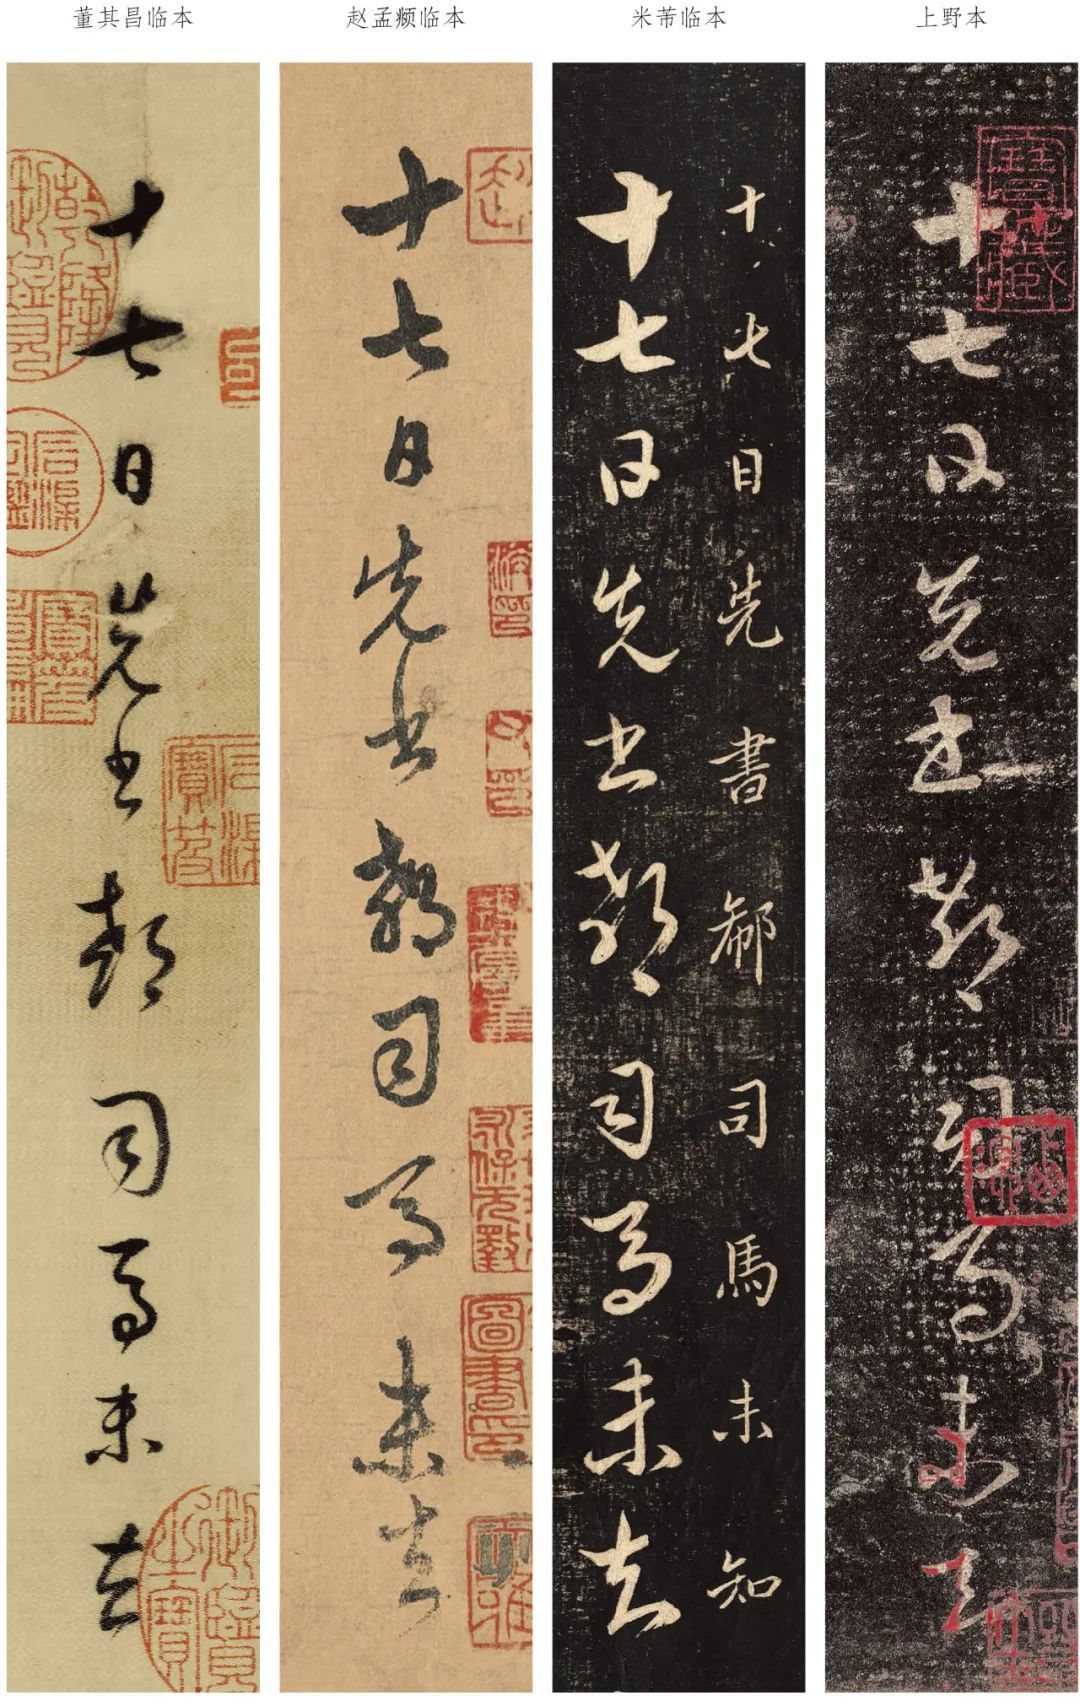 董其昌临本
赵孟𫖯临本
米芾临本
上野本
十七日先書郗司馬未去
十七日先書郗司馬未去
十七日先書郗司馬未去
十七日先書郗司馬未知
十七日先書郗司馬未去
石渠寶笈